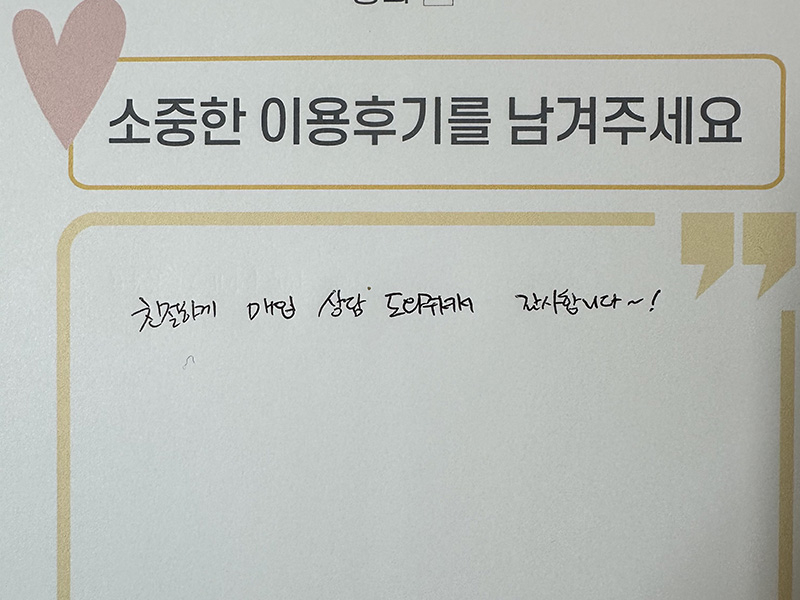 소중한 이용후기를 남겨주세요
친절하게 매입 상담 도와주셔서 감사합니다~!